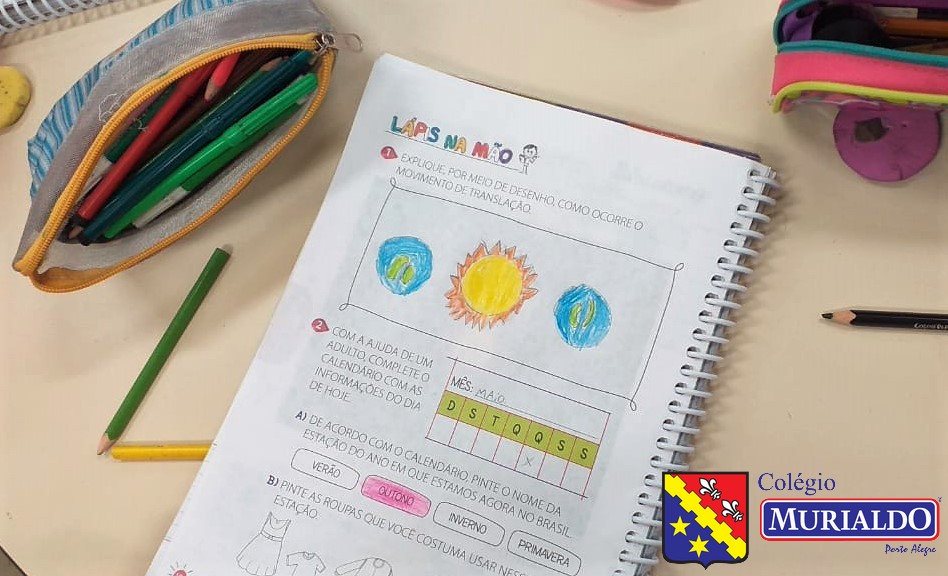 LÁPIS NA MÃO
1 EXPLIQUE, POR MEIO DE DESENHO, COMO OCORRE O
MOVIMENTO DE TRANSLAÇÃO.
2 COM A AJUDA DE UM
ADULTO, COMPLETE O
CALENDÁRIO COM AS
INFORMAÇÕES DO DIA
DE HOJE.
MÊS: MAIO
D S T Q Q S S
X
A) DE ACORDO COM O CALENDÁRIO, PINTE O NOME DA
ESTAÇÃO DO ANO EM QUE ESTAMOS AGORA NO BRASIL.
VERÃO OUTONO INVERNO PRIMAVERA
B) PINTE AS ROUPAS QUE VOCÊ COSTUMA USAR
ESTAÇÃO.
Colégio
MURIALDO
Porto Alegre